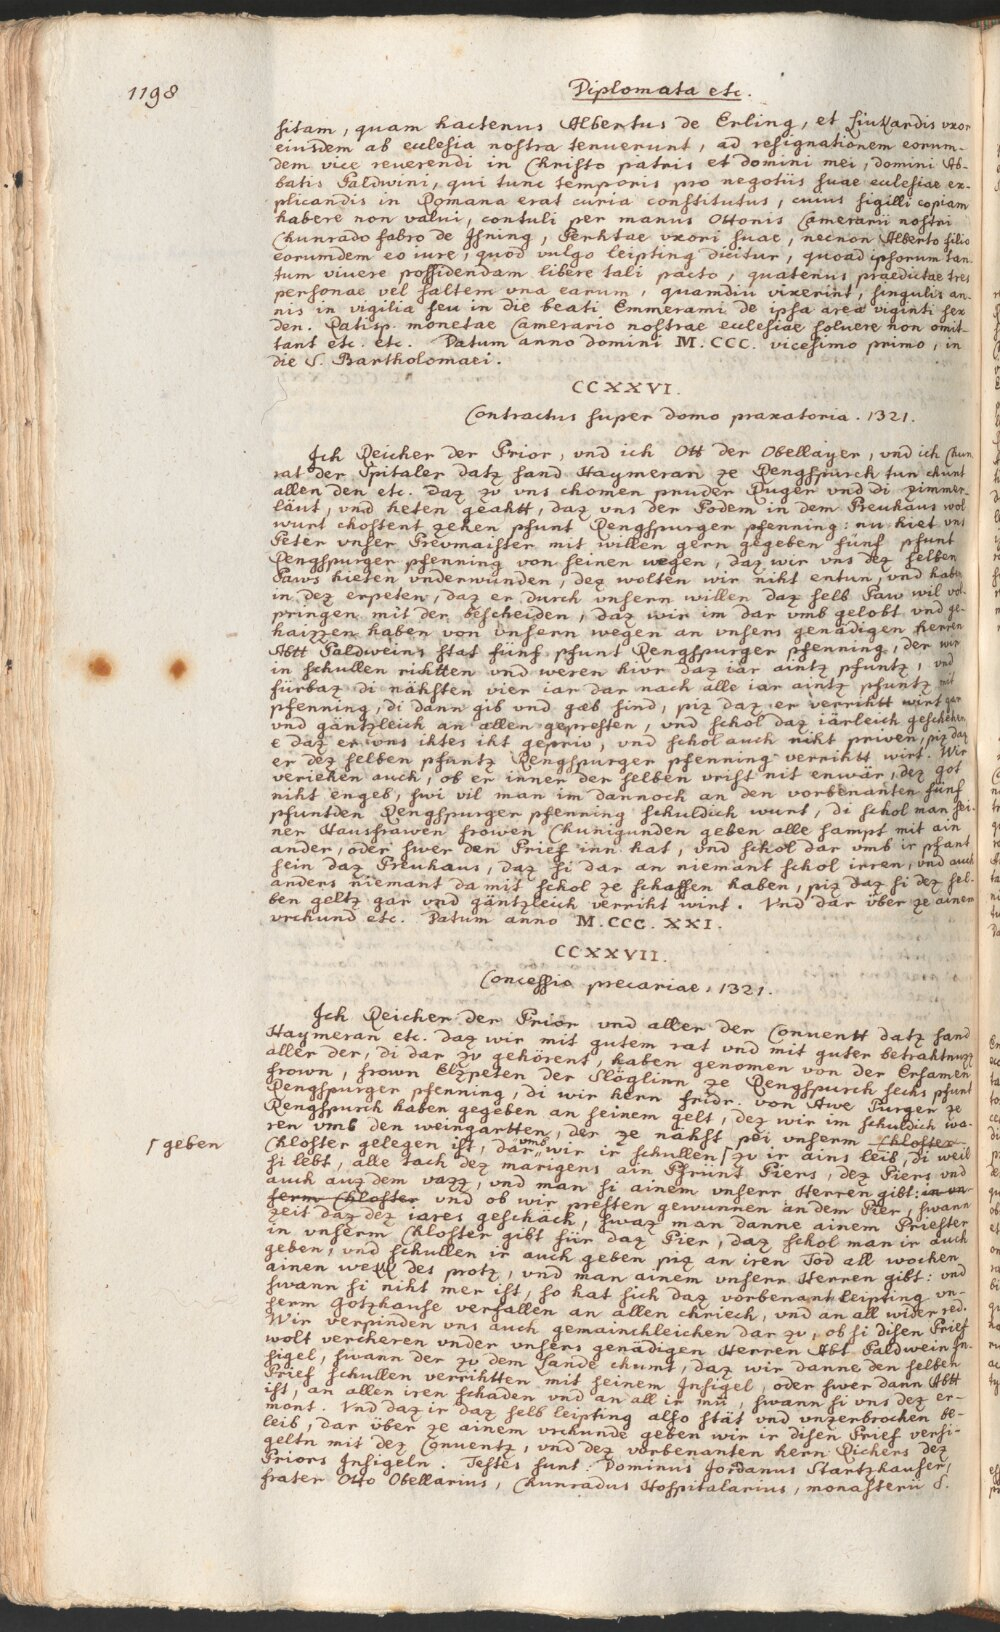 1198
Diplomata etc.
sitam, quam hactenus Albertus de Erling, et Liukardis vxor
eiusdem ab ecclesia nostra tenuerunt, ad resignationem eorum-
dem vice reuerendi in Christo patris et domini mei, domini Ab-
batis Paldwini, qui tunc temporis pro negotiis suae ecclesiae ex-
plicandis in Romana erat curia constitutus, cuius sigilli copiam
habere non valui, contuli per manus Ottonis Camerarii nostri
Chunrado fabro de Isning, Perhtae vxori suae, necnon Alberto filio
eorumdem eo iure, quod vulgo leipting dicitur, quoad ipsorum tan-
tum viuere possidendam libere tali pacto, quatenus praedictae tres
personae vel saltem vna earum, quamdiu vixerint, singulis an-
nis in vigilia seu in die beati Emmerami de ipsa area viginti sex
den. Ratisp. monetae Camerario nostrae ecclesiae soluere non omit-
tant etc. etc. Datum anno domini M. CCC. vicesimo primo, in
die S. Bartholomaei.
CCXXVI.
Contractus super domo praxatoria. 1321.
Ich Reicher der Prior, vnd ich Ott der Obellayer, vnd ich Chun
rat der Spitaler datz sand Haymeran ze Rengspurch tun chunt
allen den etc. daz zv vns chomen pruder Ruger vnd di zimmer-
läut, vnd heten geahtt, daz vns der Podem in dem Preuhaus wol
wurt chostent zehen pfunt Rengspurger pfenning: nu hiet vns
Peter vnser Prevmaister mit willen gern gegeben fünf pfunt
Rengspurger pfenning von seinen wegen, daz wir vns dez selben
Paws hieten vnderwunden, dez wolten wir niht entun, vnd haben
in dez erpeten, daz er durch vnsern willen daz selb Paw wil vol-
pringen mit der bescheiden, daz wir im dar vmb gelobt vnd ge-
haizzen haben von vnsern wegen an vnsers genädigen Herren
Abtt Paldweins stat fünf pfunt Rengspurger pfenning, der wir
in schullen rihtten vnd weren hivr daz iar aintz pfuntz, vnd
fürbaz di nähsten vier iar dar nach alle iar aintz pfuntz mit
pfenning, di dann gib vnd gæb sind, piz daz er verrihtt wirt gar
vnd gäntzleich an allen gepresten, vnd schol daz iärleich geschehen
e daz er vns ihtes iht geprivv, vnd schol auch niht priven, piz daz
er dez selben pfuntz Rengspurger pfenning verrihtt wirt. Wir
veriehen auch, ob er inner der selben vrist nit enwär, dez got
niht engeb, swi vil man im dannoch an den vorbenanten fünf
pfunden Rengspurger pfenning schuldich wurt, di schol man sei-
ner Hausfrawen frowen Chunigunden geben alle sampt mit ain
ander, oder swer den Prief inn hat, vnd schol dar vmb ir pfant
sein daz Preuhaus, daz si dar an niemant schol irren, vnd auch
anders niemant da mit schol ze schaffen haben, piz daz si dez sel-
ben geltz gar vnd gäntzleich verriht wirt. Vnd dar über ze ainem
vrchund etc. Datum anno M. CCC. XXI.
CCXXVII.
Concessio precariae, 1321.
Ich Reicher der Prior vnd aller der Conuentt datz sand
Haymeran etc. daz wir mit gutem rat vnd mit guter betrahtnuzz
aller der, di dar zv gehörent, haben genomen von der Ersamen
frown, frown Elzpeten der Slöglinn ze Rengspurch sechs pfunt
Rengspurger pfenning, di wir hern fridr. von Awe Purger ze
Rengspurch haben gegeben an seinem gelt, dez wir im schuldich wa-
ren vmb den weingartten, der ze nähst pei vnserm Chloster
Chloster gelegen ist, dar vmb wir ir schullen ⌈ zv ir ains leib, di weil
⌈ geben
si lebt, alle tach dez marigens ain Pfrünt Piers, dez Piers vnd
auch auz dem vazz, vnd man si einem vnserr Herren gibt: in vn
serm Chloster vnd ob wir presten gewunnen an dem Pier, swann
zeit daz dez iares geschäch, swaz man danne ainem Priester
in vnserm Chloster gibt für daz Pier, daz schol man ir auch
geben, vnd schullen ir auch geben piz an iren Tod all wochen
ainen wekk des protz, vnd man ainem vnserr Herren gibt: vnd
swann si niht mer ist, so hat sich daz vorbenant Leipting vn-
serm Gotzhause verfallen an allen chriech, vnd an all wider red.
Wir verpinden vns auch gemainchleichen dar zv, ob si disen Prief
wolt vercheren vnder vnsers genädigen Herren Abt Paldwein In-
sigel, swann der zv dem Lande chunt, daz wir danne den selben
Prief schullen verrihtten mit seinem Insigel, oder swer dann Abtt
ist, an allen iren schaden vnd an all ir mü, swann si vns dez er-
mont. Vnd daz ir daz selb leipting also stät vnd vnzerbrochen be-
leib, dar über ze ainem vrchunde geben wir ir disen Prief versi-
gelten mit dez Conuentz, vnd dez vorbenanten hern Richers dez
Priors Insigeln. Testes sunt. Dominus Jordanus Startzhauser,
frater Otto Obellarius, Chunradus Hospitalarius, monasterii S.